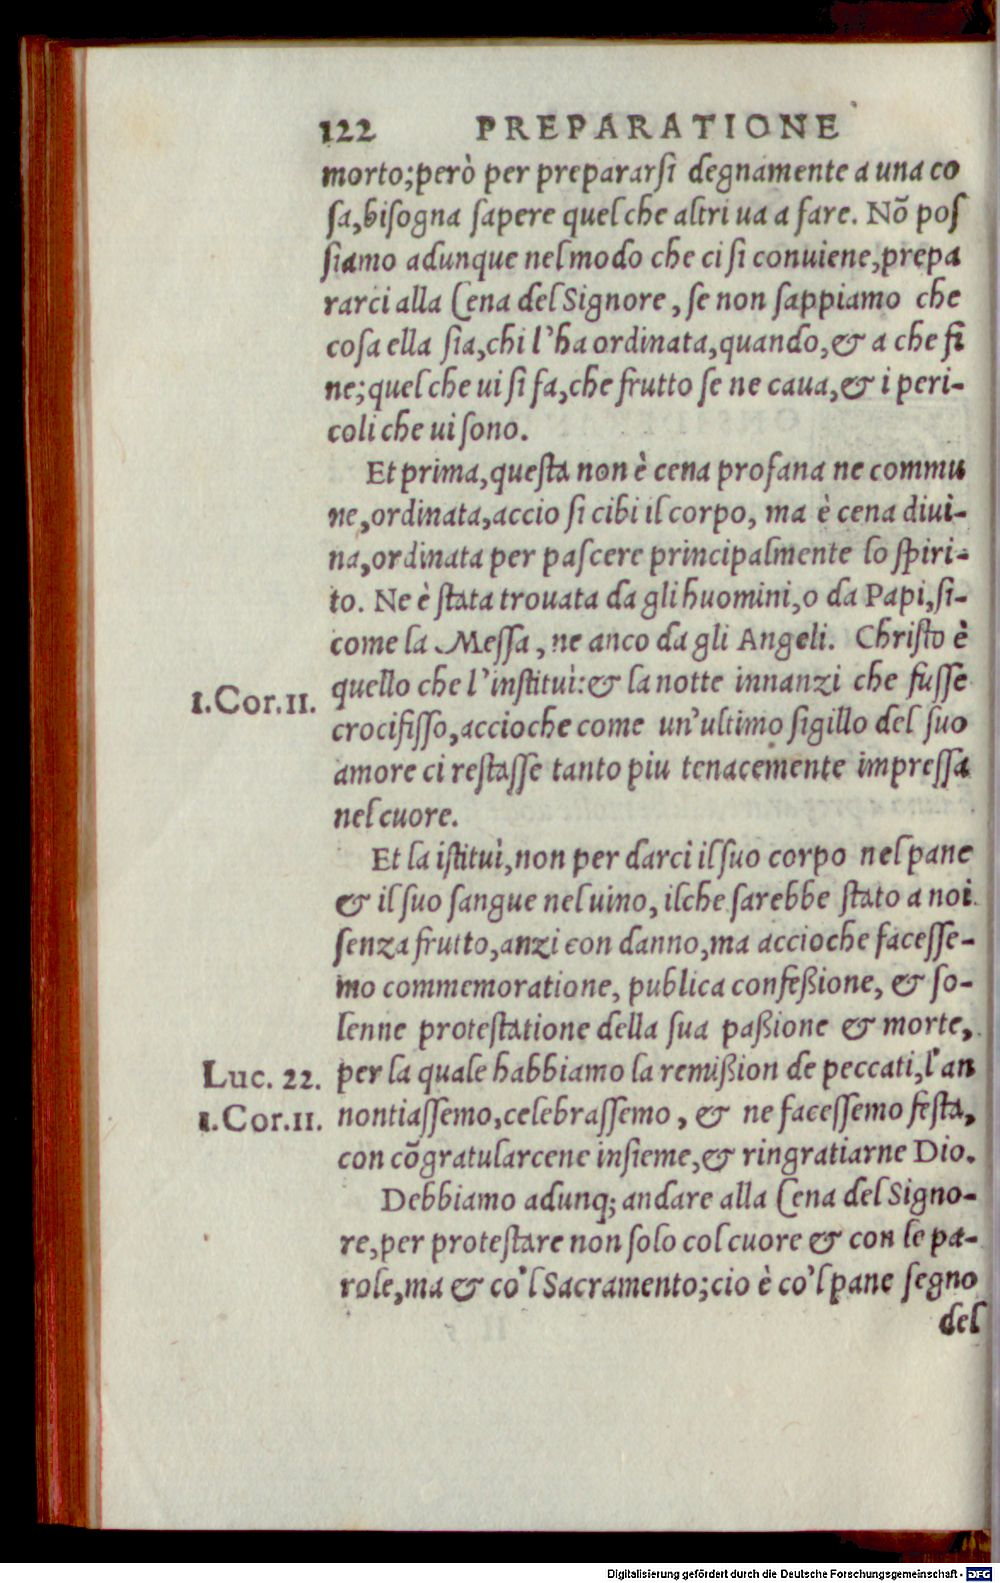 122 PREPARATIONE
morto;però per prepararſi degnamente a una co
ſa,biſogna ſapere quel che altri ua a fare. Nõ poſ
ſiamo adunque nel modo che ci ſi conuiene,prepa
rarci alla Cena del Signore, ſe non ſappiamo che
coſa ella ſia,chi l'ha ordinata,quando,& a che fi
ne;quel che ui ſi fa,che frutto ſe ne caua,& i peri-
coli che ui ſono.
Et prima,queſta non è cena profana ne commu
ne,ordinata,accio ſi cibi il corpo, ma è cena diui-
na,ordinata per paſcere principalmente lo ſpiri-
to. Ne è ſtata trouata da gli huomini,o da Papi,ſi-
come la Meſſa, ne anco da gli Angeli. Chriſto è
1.Cor.11. quello che l'inſtituì:& la notte innanzi che fuſſe
crocifiſſo,accioche come un'ultimo ſigillo del ſuo
amore ci reſtaſſe tanto piu tenacemente impreſſa
nel cuore.
Et la iſtituì,non per darci il ſuo corpo nel pane
& il ſuo sangue nel uino, ilche ſarebbe ſtato a noi
ſenza frutto,anzi con danno,ma accioche faceſſe-
mo commemoratione, publica confeßione, & ſo-
lenne proteſtatione della ſua paßione & morte,
Luc. 22. per la quale habbiamo la remißion de peccati,l'an
1.Cor.11. nontiaſſemo,celebraſſemo, & ne faceſſemo feſta,
con cõgratularcene inſieme,& ringratiarne Dio.
Debbiamo adunq; andare alla Cena del Signo-
re,per proteſtare non ſolo col cuore & con le pa-
role,ma & co'l Sacramento;cio è co'l pane ſegno
del
Digitalisierung gefördert durch die Deutsche Forschungsgemeinschaft - DFG